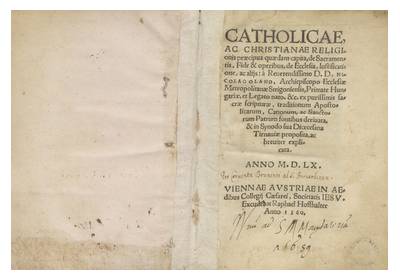 CATHOLICAE,
AC CHRISTIANAE RELIGI-
onis præcipua quædam capita, de Sacramen-
tis, Fide & operibus, de Ecclesia, Iustificati-
one, ac alijs: à Reuerendissimo D. D. NI-
COLAO OLAHO, Archiepiscopo Ecclesiæ
Metropolitanæ Strigoniensis, Primate Hun-
gariæ, et Legato nato, &c. ex purissimis sa-
cræ scripturæ, traditionum Aposto-
licarum, Canonum, ac Sancto-
rum Patrum fontibus deriuata,
& in Synodo sua Diœcesana
Tirnauiæ proposita, ac
breuiter expli-
cata.
ANNO M.D.LX.
VIENNAE AVSTRIAE IN AE-
dibus Collegij Cæsarei, Societatis IESV,
Excudebat Raphael Hofhalter
Anno 1560.